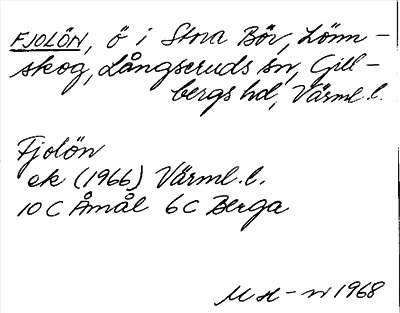 FJOLÖN, ö i Stora Bör, Lönn-
skog, Långseruds sn, Gill-
bergs hd, Värml. l.
Fjolön
ek (1966) Värml. l.
10 C Åmål 6 C Berga
1968